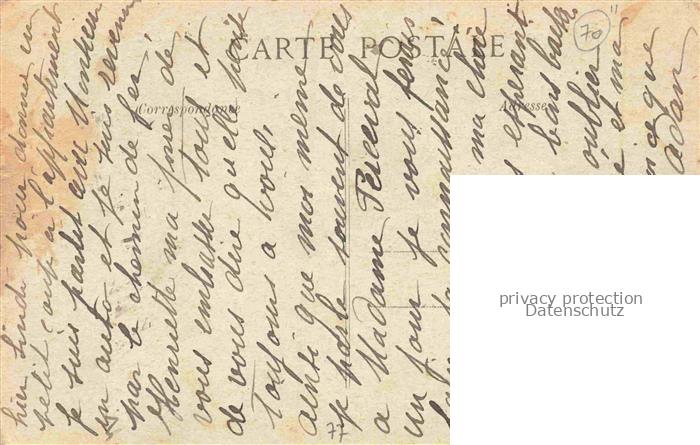 CARTE POSTALE
Correspondance
Adresse
70
hier lundi pour donner un
petit coup à l'appartement
Je suis partit avec Monsieur
en auto et je suis revenu
par le chemin de fer
Henriette ma prie de
vous embrasser tous et
de vous dire qu'elle pense
Toujours a vous
ainsi que moi même
je parle souvent de vous
a Madame Perceval
un jour je vous ferais
connaissance
ma chère
esperant
bons baisers
oublier
et ma
que
77
privacy protection
Datenschutz